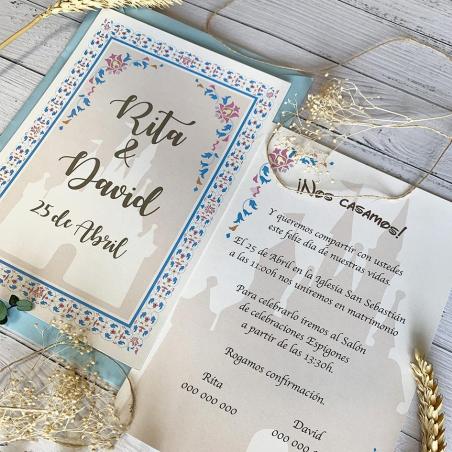 Rita
&
David
25 de Abril
¡Nos casamos!
Y queremos compartir con ustedes
este feliz día de nuestras vidas.
El 25 de Abril en la Iglesia San Sebastián
a las 11:00h nos uniremos en matrimonio
Para celebrarlo iremos al Salón
de celebraciones Espigones
a partir de las 13:30h.
Rogamos confirmación.
Rita
000 000 000
David
000 000